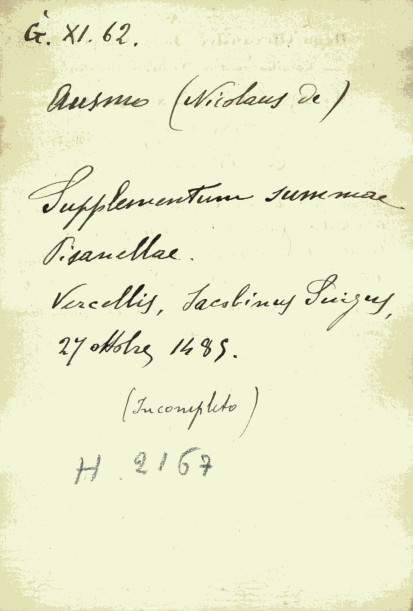 G. XI. 62.
Ausmo (Nicolaus de)
Supplementum summae
Pisanellae.
Vercellis, Jacobinus Suigus,
27 ottobre 1485.
(Incompleto)
H 2167